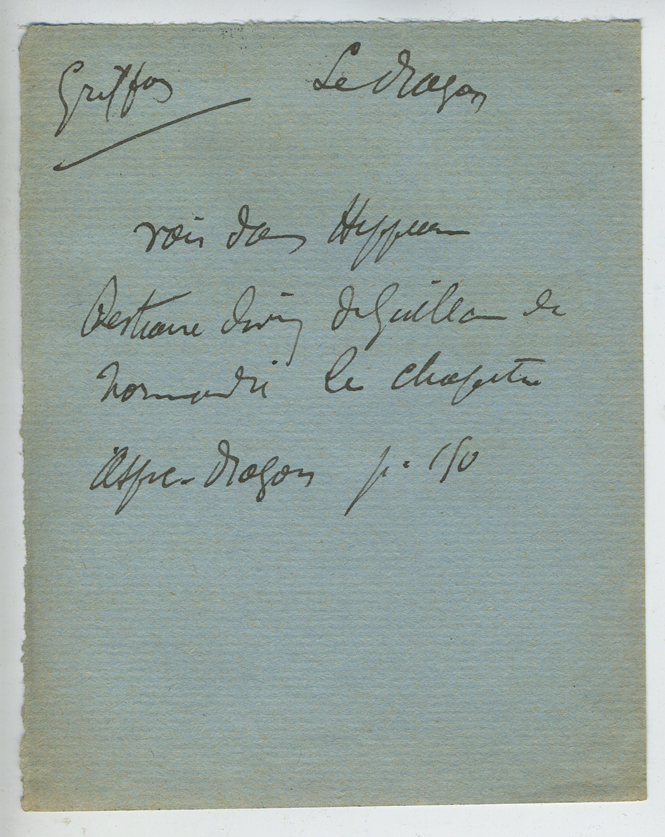 Griffon Le dragon
voir dans Hippeau
Bestiaire divin de Guillaume de
Normandie le chapitre
Aspic-dragon p. 150